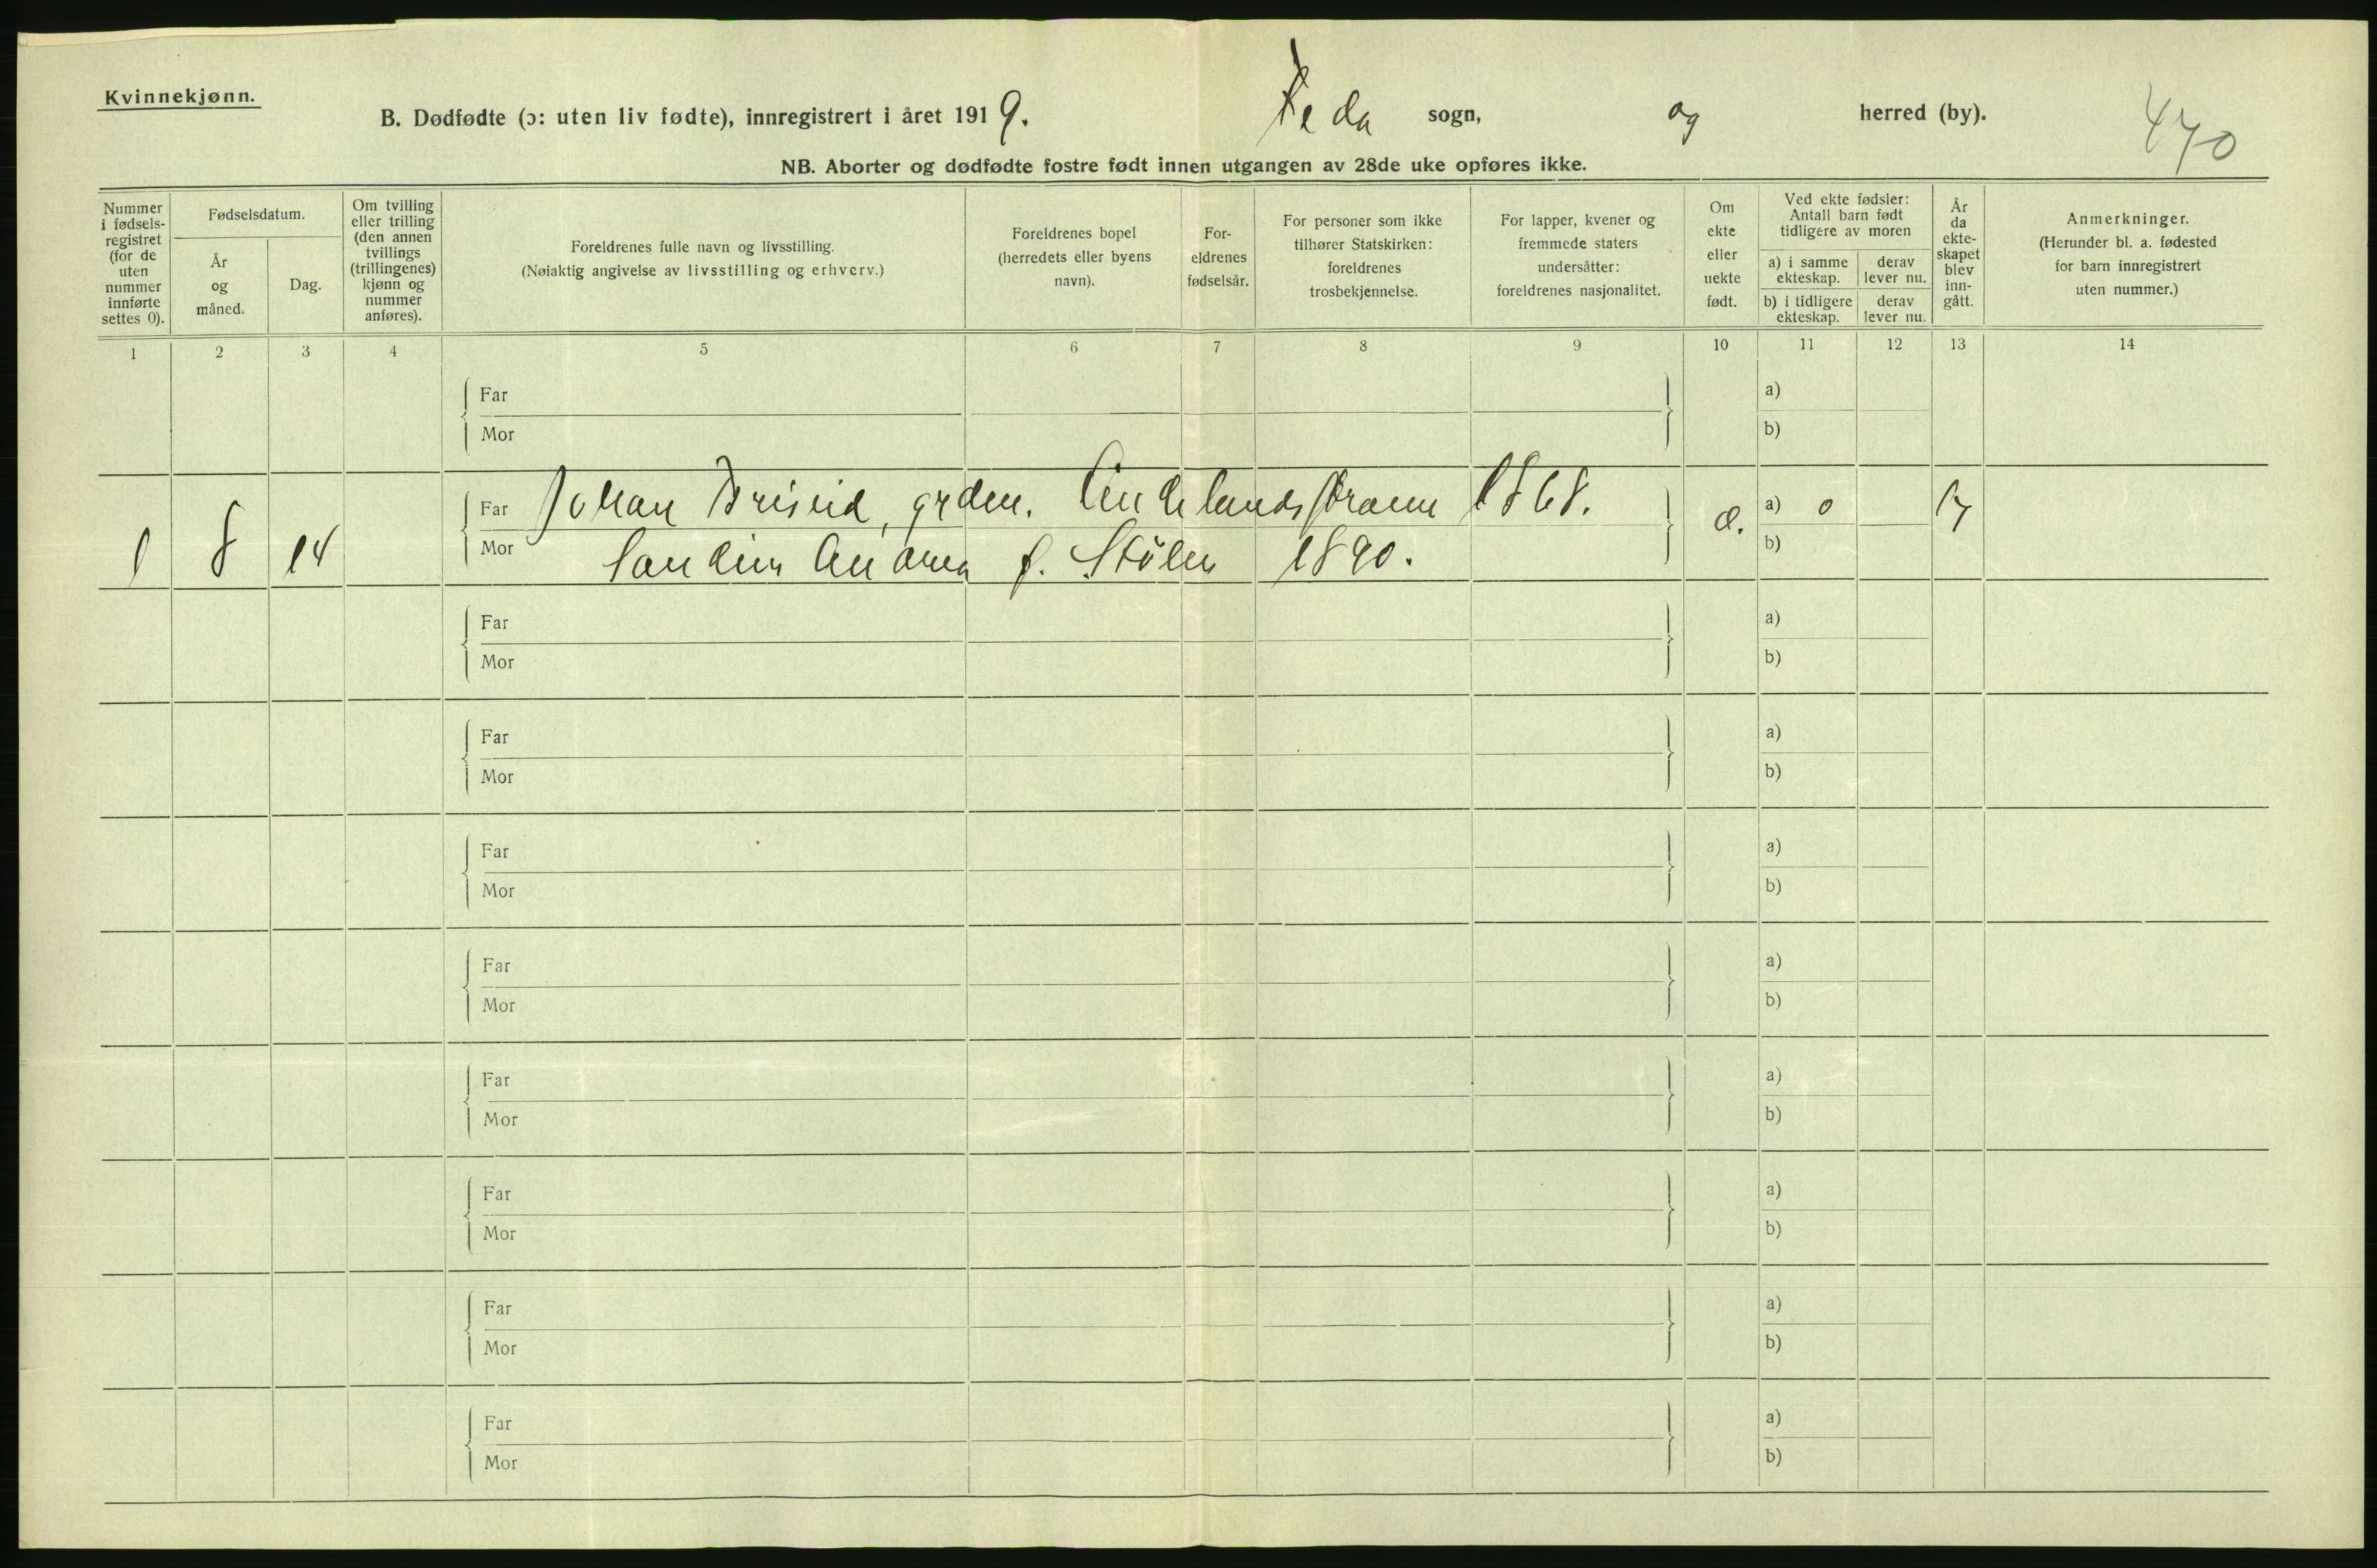 Kvinnekjønn.
B. Dødfødte (ɔ: uten liv fødte), innregistrert i året 1919. Feda sogn, og herred (by). 470
NB. Aborter og dødfødte fostre født innen utgangen av 28de uke opføres ikke.
Nummer i fødsels-registret (for de uten nummer innførte settes 0).
Fødselsdatum.
År og måned.
Dag.
Om tvilling eller trilling (den annen tvillings (trillingenes) kjønn og nummer anføres).
Foreldrenes fulle navn og livsstilling.
(Nøiaktig angivelse av livsstilling og erhverv.)
Foreldrenes bopel (herredets eller byens navn).
For-eldrenes fødselsår.
For personer som ikke tilhører Statskirken: foreldrenes trosbekjennelse.
For lapper, kvener og fremmede staters undersåtter: foreldrenes nasjonalitet.
Om ekte eller uekte født.
Ved ekte fødsler: Antall barn født tidligere av moren
a) i samme ekteskap.
derav lever nu.
b) i tidligere ekteskap.
derav lever nu.
År da ekte-skapet blev inn-gått.
Anmerkninger.
(Herunder bl. a. fødested for barn innregistrert uten nummer.)
1 2 3 4 5 6 7 8 9 10 11 12 13 14
Far a)
Mor b)
Far Johan grdm. 1868. a) 0 17
1 8 14 Mor Andrea f. Stølen 1890. b)
Far a)
Mor b)
Far a)
Mor b)
Far a)
Mor b)
Far a)
Mor b)
Far a)
Mor b)
Far a)
Mor b)
Far a)
Mor b)
Far a)
Mor b)